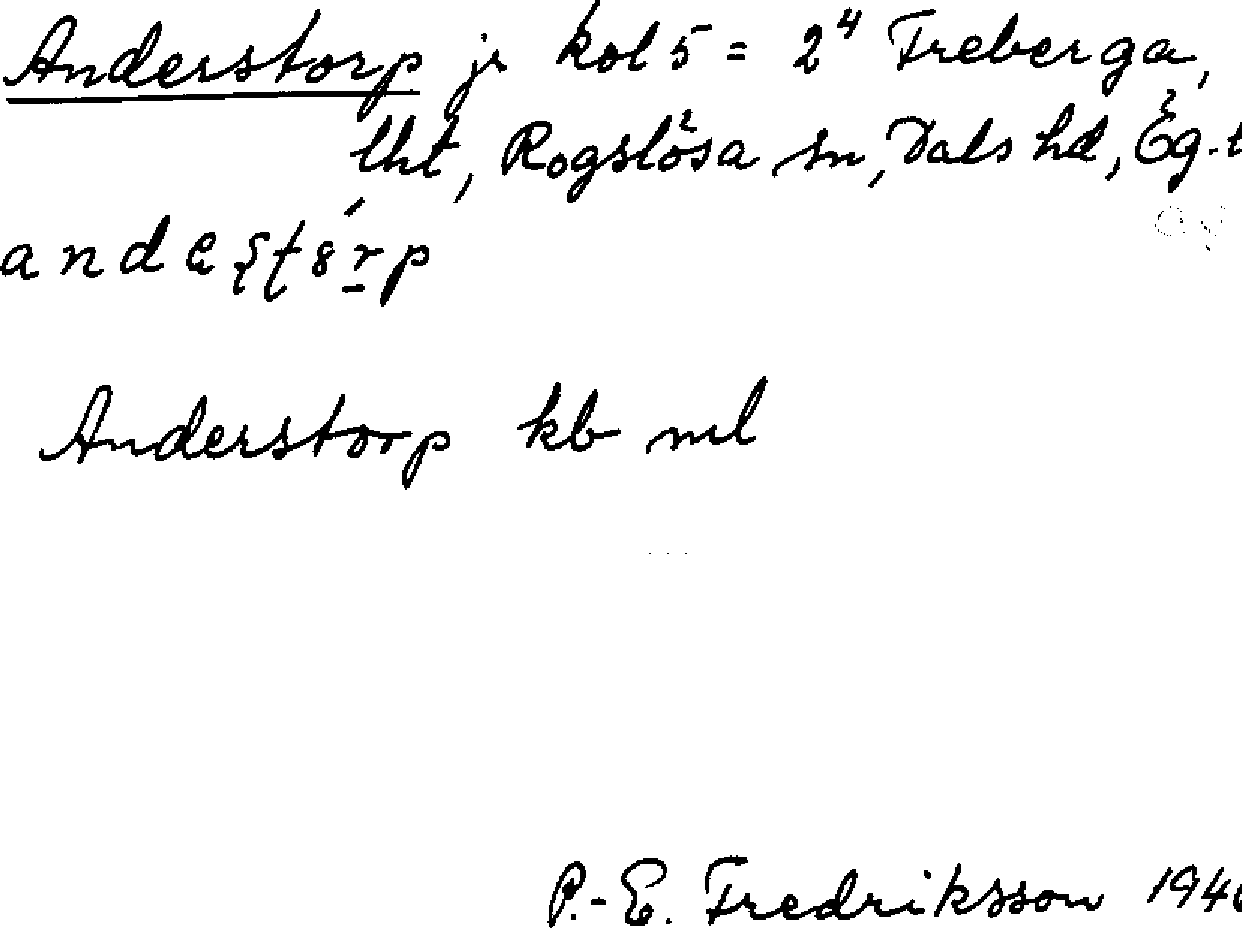 Anderstorp jr kol 5 = 2⁴ Treberga,
lht, Rogslösa sn, Dals hd, Ög.
Anderstorp kb ml
P.-E. Fredriksson